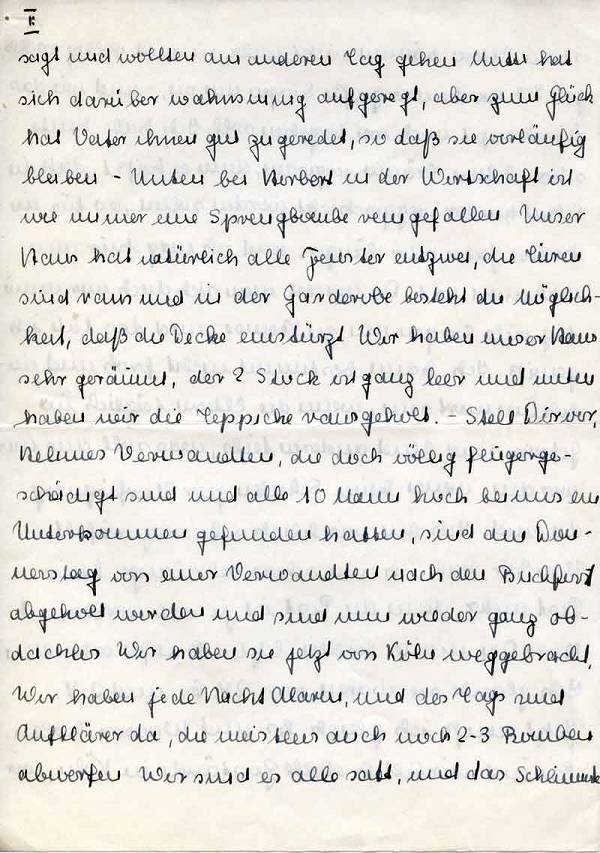 II.
sagt und wollten am anderen Tag gehen Mutti hat
sich darüber wahnsinnig aufgeregt, aber zum Glück
hat Vater ihnen gut zugeredet, so daß sie vorläufig
bleiben – Unten bei Norbert in der Wirtschaft ist
wie immer eine Sprengbombe reingefallen Unser
Haus hat natürlich alle Fenster entzwei, die Türen
sind raus und in der Garderobe besteht die Möglich-
keit, daß die Decke einstürzt Wir haben unser Haus
sehr geräumt, der 2 Stock ist ganz leer und unten
haben wir die Teppiche rausgeholt. – Stell Dir vor,
Verwandten, die doch völlig fliegerge-
schädigt sind und alle 10 Mann hoch bei uns ein
Unterkommen gefunden hatten, sind den Don-
nerstag von einer Verwandten nach den
abgeholt worden und sind nun wieder ganz ob-
dachlos Wir haben sie jetzt von Köln weggebracht.
Wir haben jede Nacht Alarm, und des Tags sind
Aufklärer da, die meistens auch noch 2-3 Bomben
abwerfen Wir sind es alle satt, und das Schlimmste